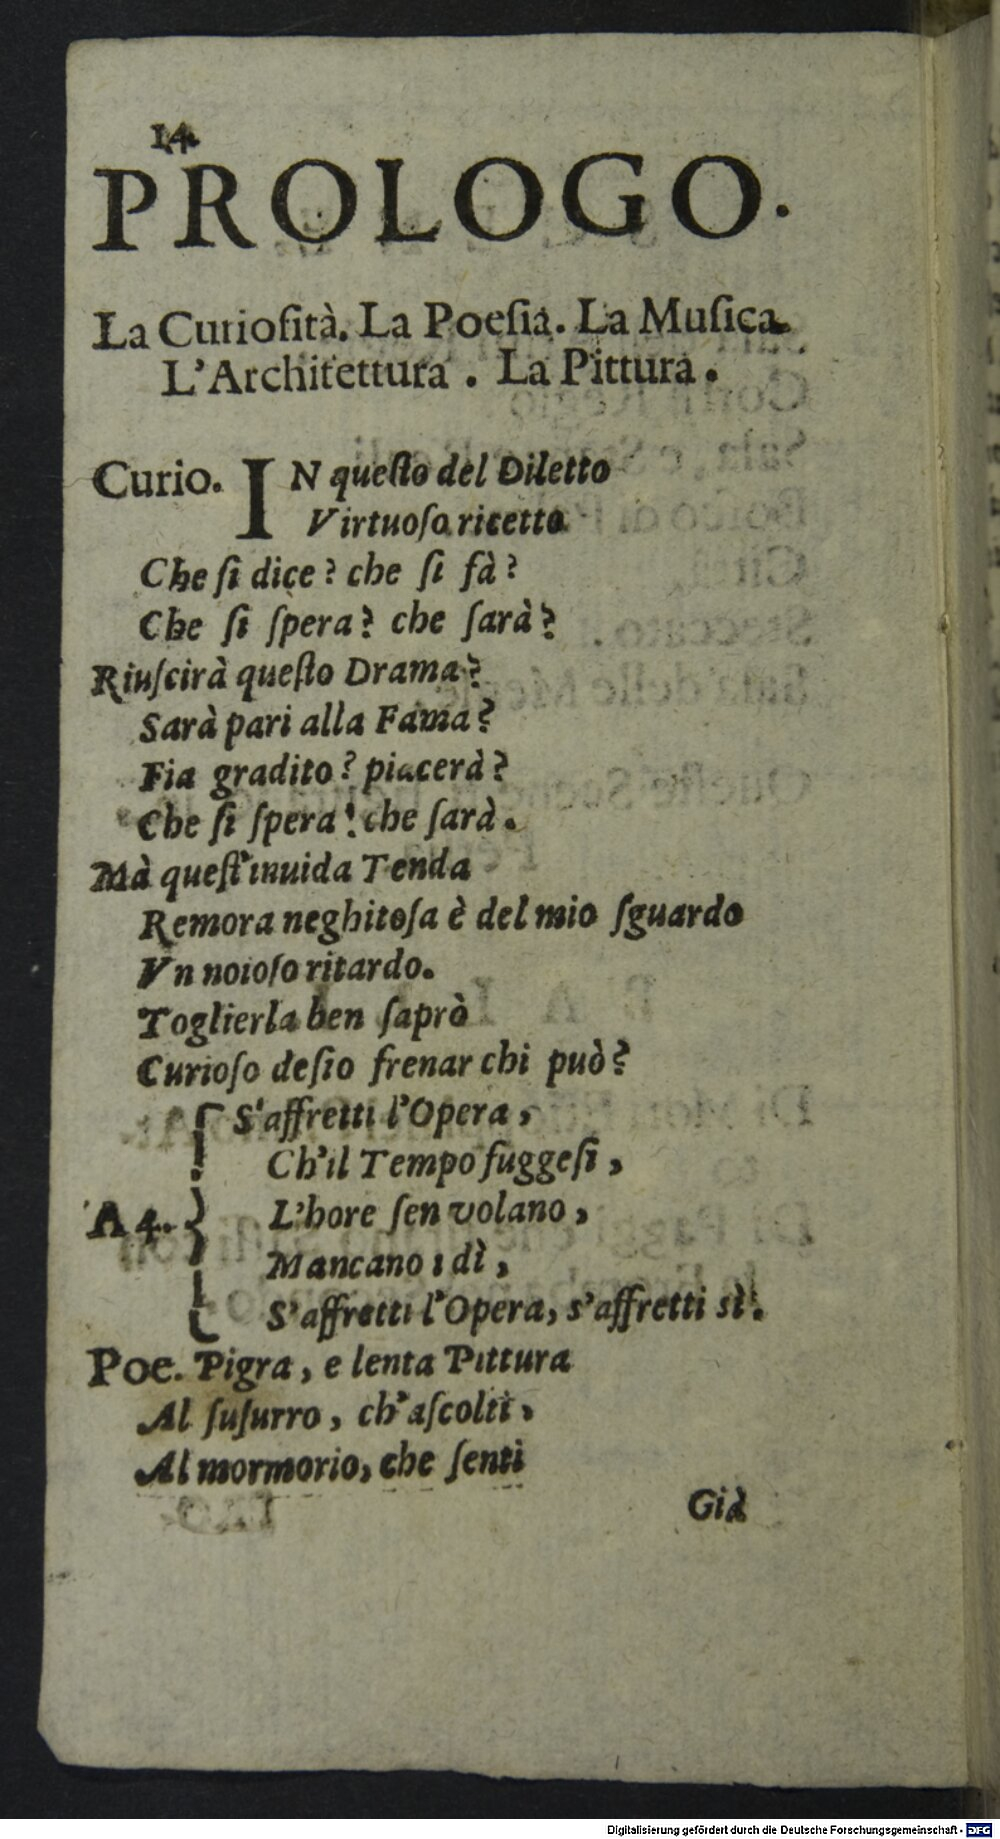 14
PROLOGO.
La Curioſità. La Poeſia. La Muſica.
L'Architettura. La Pittura.
Curio. IN queſto del Diletto
Virtuoſo ricetto
Che ſi dice? che ſi fà?
Che ſi ſpera? che ſarà?
Riuſcirà queſto Drama?
Sarà pari alla Fama?
Fia gradito? piacerà?
Che ſi ſpera! che ſarà.
Mà queſt'inuida Tenda
Remora neghitoſa è del mio ſguardo
Vn noioſo ritardo.
Toglierla ben ſaprò
Curioſo deſio frenar chi può?
S'affretti l'Opera,
Ch'il Tempo fuggeſi,
A 4. L'hore ſen volano,
Mancano i dì,
S'affretti l'Opera, s'affretti sì.
Poe. Pigra, e lenta Pittura
Al ſuſurro, ch'aſcolti,
Al mormorio, che ſenti
Già
Digitalisierung gefördert durch die Deutsche Forschungsgemeinschaft - DFG